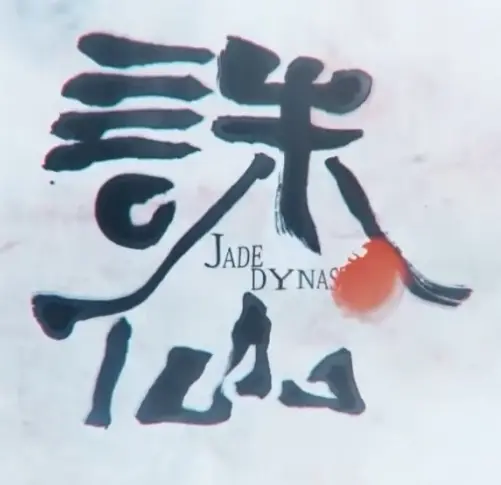 誅
JADE
DYNAS
仙